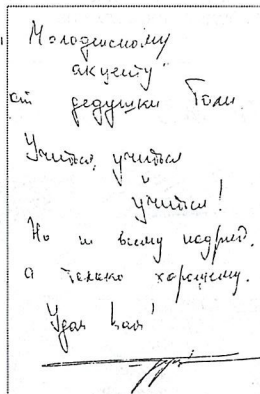 Молодёжному
акценту
от дедушки Толи.
Учиться, учиться
и
учиться!
Но не всему подряд,
а только хорошему.
Удач Вам!